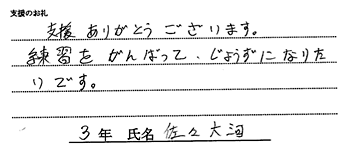 支援のお礼
支援ありがとうございます。
練習をがんばって、じょうずになりた
いです。
3年 氏名 佐々大